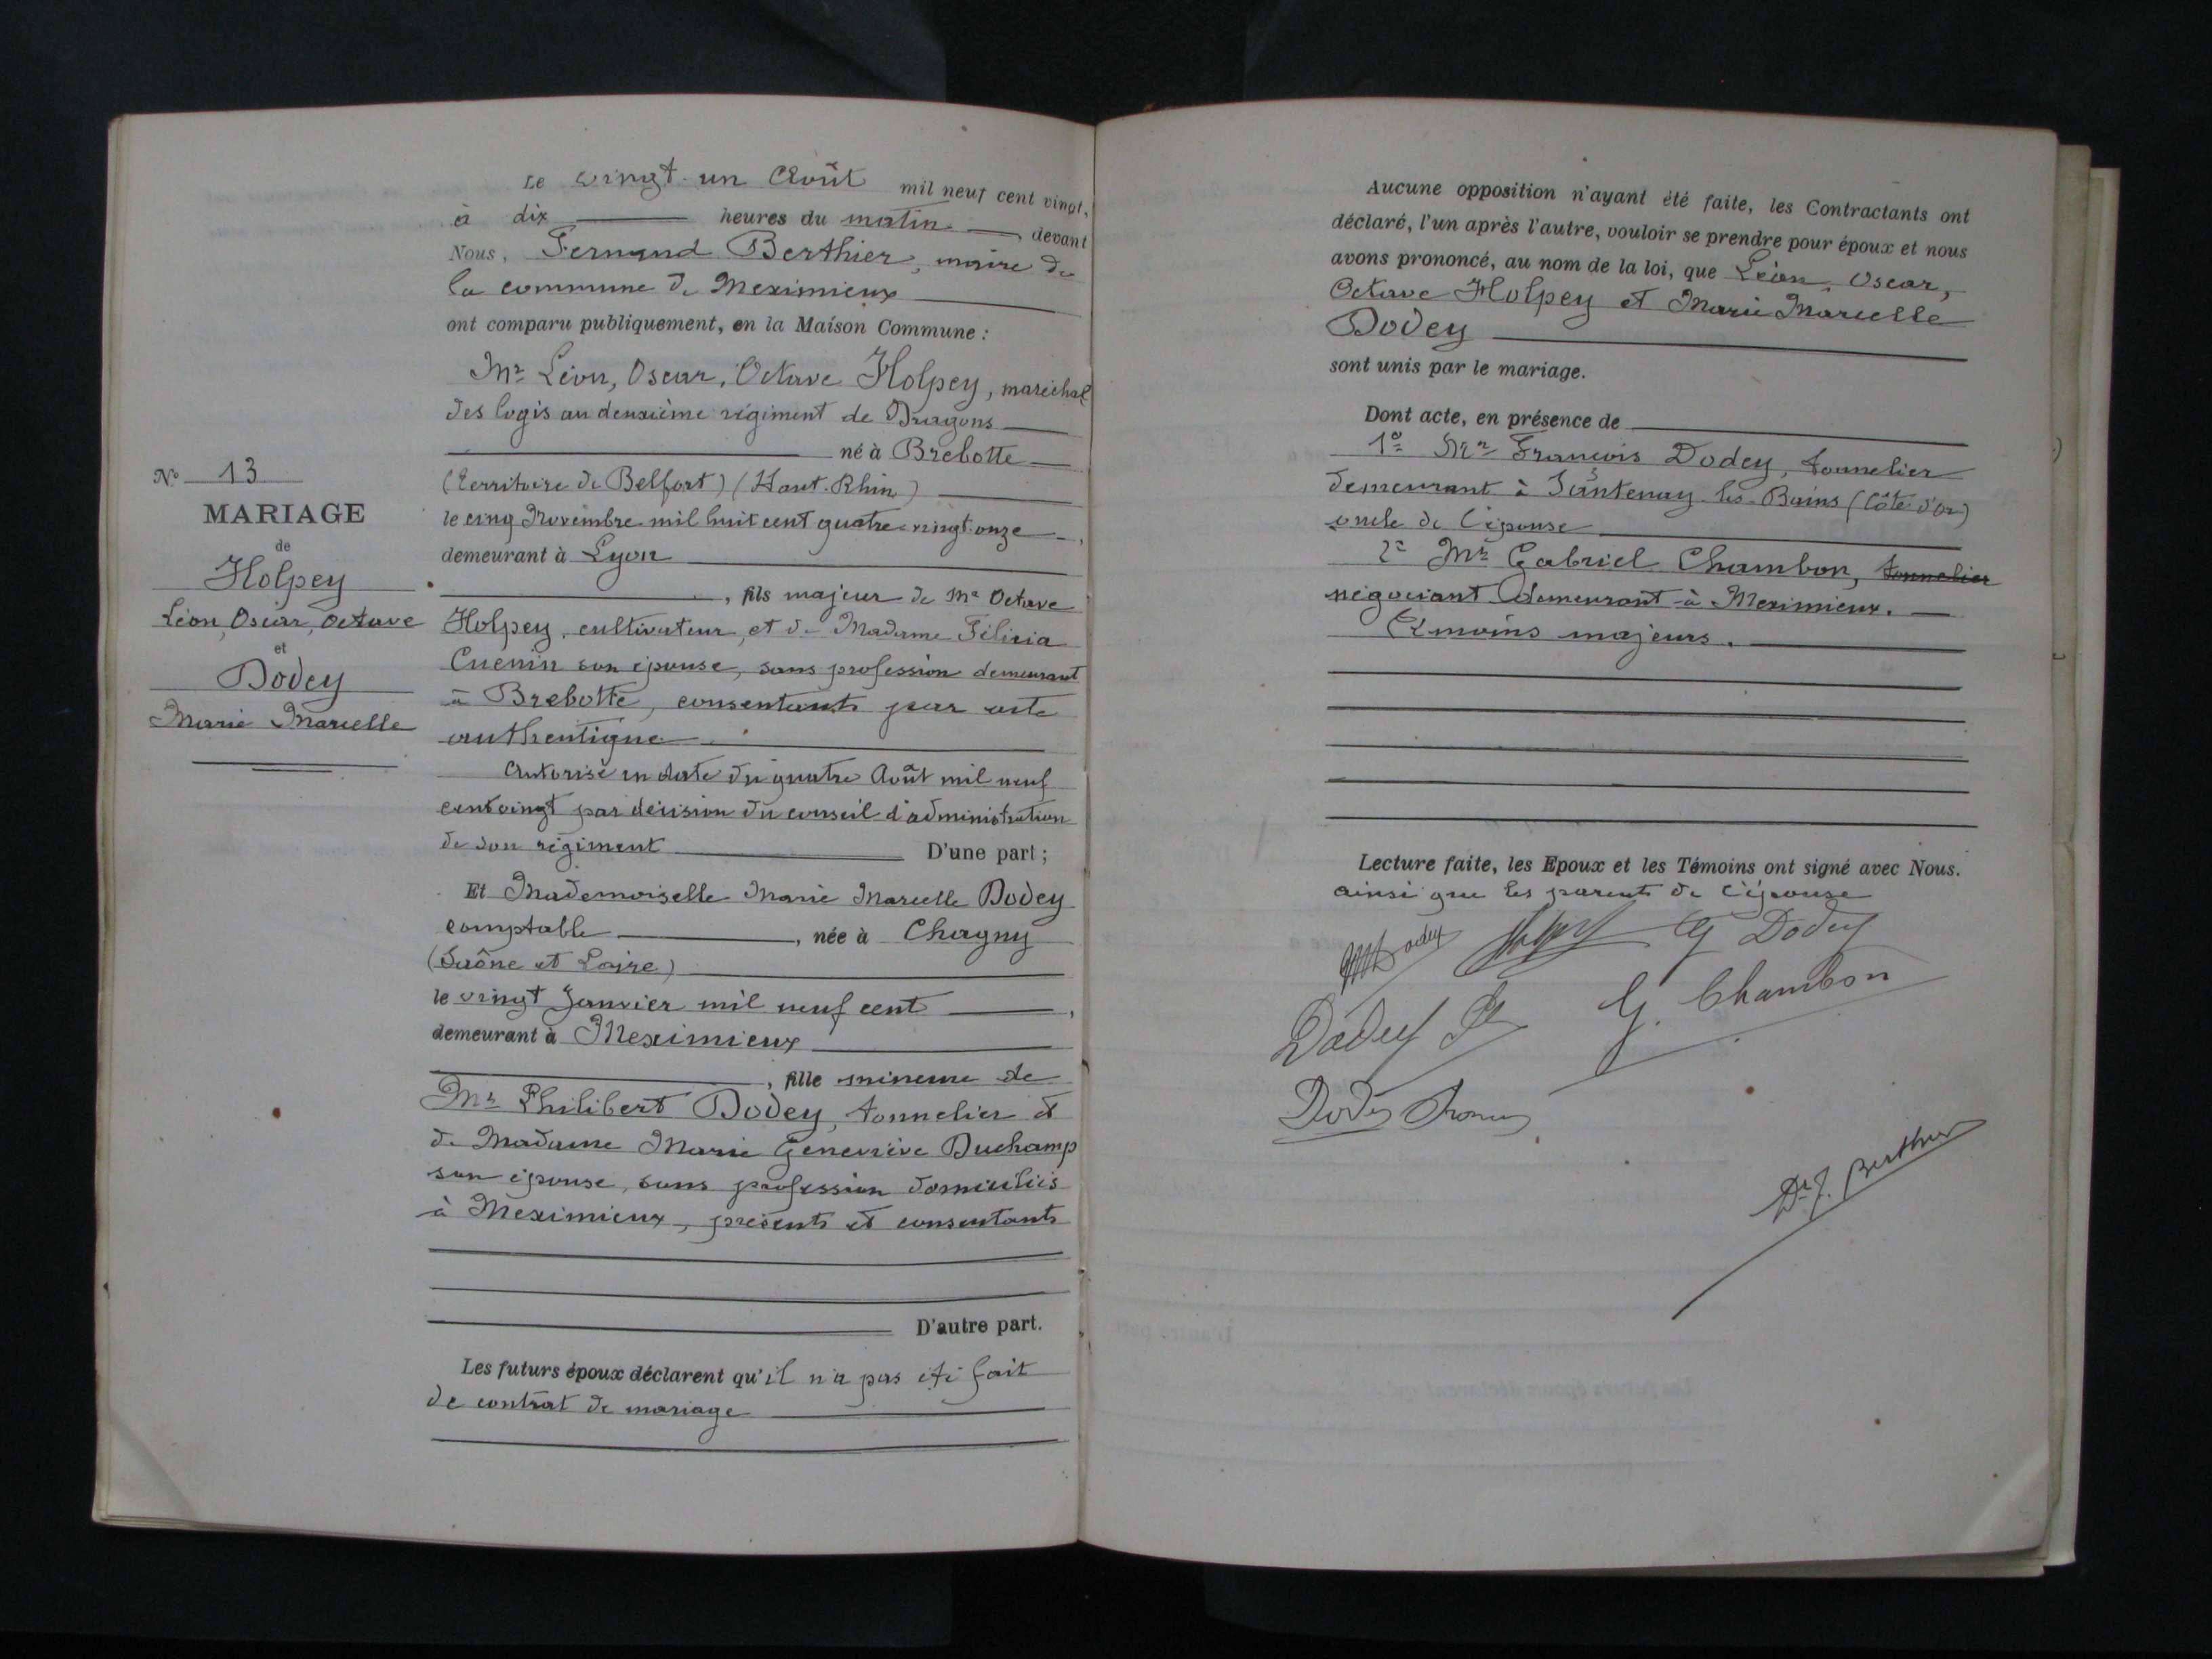 N° 13
MARIAGE
de
Holpey
Léon, Oscar, Octave
et
Dodey
Marie Marcelle
Le vingt-un Août mil neuf cent vingt,
à dix heures du matin, devant
Nous, Fernand Berthier, maire de
la commune de Meximieux
ont comparu publiquement, en la Maison Commune :
Mr Léon, Oscar, Octave Holpey, maréchal
des logis au deuxième régiment de Dragons
né à Brebotte
(Territoire de Belfort) (Haut-Rhin)
le cinq Novembre mil huit cent quatre-vingt-onze,
demeurant à Lyon
, fils majeur de Mr Octave
Holpey, cultivateur, et de Madame Félicia
Cuenin son épouse, sans profession demeurant
à Brebotte, consentants par acte
authentique.
Autorisé en date du quatre Août mil neuf
cent vingt par décision du conseil d'administration
de son régiment D'une part ;
Et Mademoiselle Marie Marcelle Dodey
comptable, née à Chagny
(Saône et Loire)
le vingt Janvier mil neuf cent,
demeurant à Meximieux
, fille mineure de
Mr Philibert Dodey, tonnelier et
de Madame Marie Geneviève Duchamp
son épouse, sans profession domiciliés
à Meximieux, présents et consentants
D'autre part.
Les futurs époux déclarent qu'il n'a pas été fait
de contrat de mariage
Aucune opposition n'ayant été faite, les Contractants ont
déclaré, l'un après l'autre, vouloir se prendre pour époux et nous
avons prononcé, au nom de la loi, que Léon, Oscar,
Octave Holpey et Marie Marcelle
Dodey
sont unis par le mariage.
Dont acte, en présence de
1° Mr François Dodey, tonnelier
demeurant à Santenay-les-Bains (Côte d'Or)
oncle de l'épouse
2° Mr Gabriel Chambon, tonnelier
négociant demeurant à Meximieux.
Témoins majeurs.
Lecture faite, les Epoux et les Témoins ont signé avec Nous.
ainsi que les parents de l'épouse
Dodey Holpey G Dodey
Dodey P G. Chambon
Dodey
Dr F. Berthier